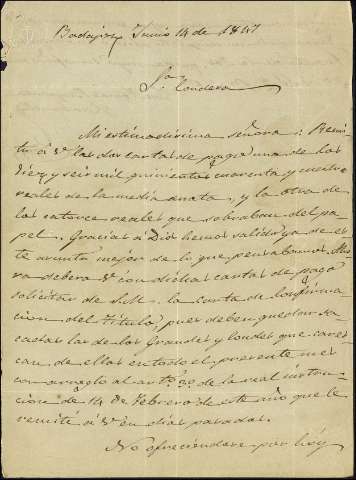 Badajoz Junio 14 de 1847
Sra. Condesa
Mi estimadisima señora: Remi-
to á V. las dos cartas de pago una de los
diez y seis mil quinientos cuarenta y cuatro
reales de la media anata, y la otra de
los catorce reales que sobraban del pa-
pel. Gracias á Dios hemos salido ya de es-
te asunto mejor de lo que pensabamos. Aho-
ra debera V. con dichas cartas de pago
solicitar de S.M. la carta de confirma-
cion del Titulo, pues deben quedar sa-
cadas las de los Grandes y Condes que carez-
can de ellas en todo el presente mes
con arreglo al arto. 20 de la real instruc-
cion de 14 de Febrero de este año que le
remití á V. en dias pasados.
No ofreciendose por hoy